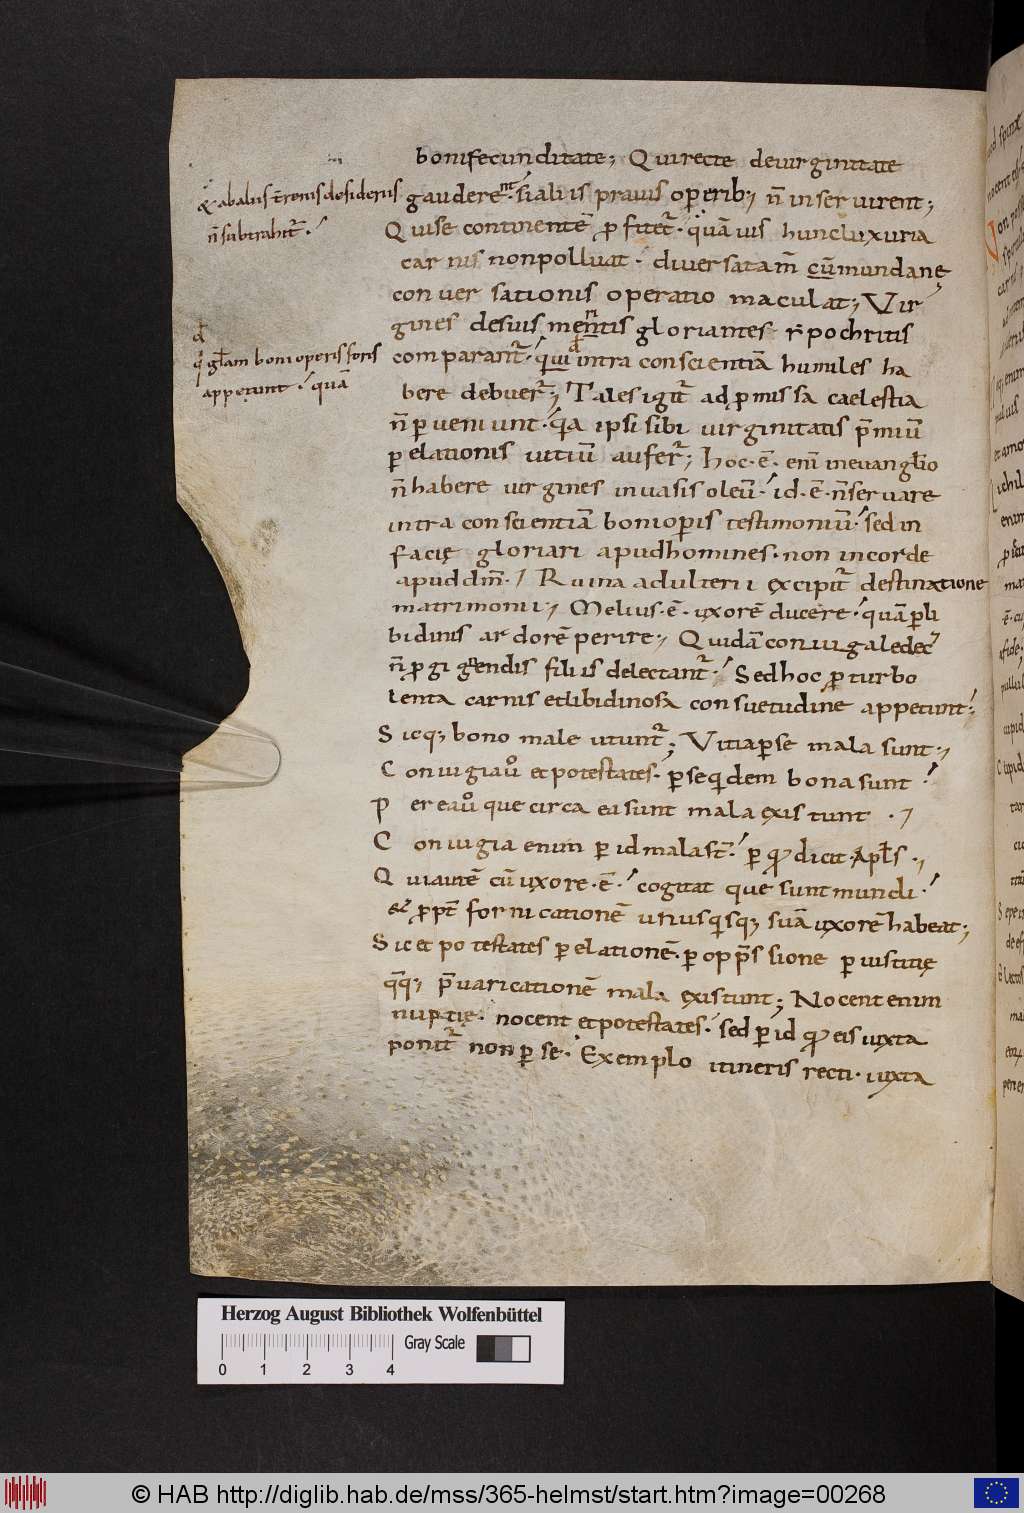 bonifecunditate; Qui recte de uirginitate
& ab aliis t̄renis desideriis
gauderent. si aliis prauis operib; n̄ inseruirent;
n̄ subtrahit̄.
Qui se continentē ꝓfitet̄. quā uis hunc luxuria
carnis non polluat. diuersa tam̄ cū mundanę
conuersationis operatio maculat; Vir
gines de suis meritis gloriantes. ẏpochritis
q̇ gl̄am boni operis foris
comparant̄. qui intra conscientiā humiles ha
appetunt. quā
bere debuer̄; Tales igit̄ ad ꝓmissa caelestia
n̄ perueniunt. q̄a ipsi sibi uirginitatis p̄miū
ꝑ elationis uitiū aufer̄; Hoc. ē. eni in euanglio
n̄ habere uirgines in uasis oleū. id. ē. n̄ seruare
intra conscientiā boni oꝑis testimoniū. sed in
facię gloriari apud homines. non in corde
apud dm̄. Ruina adulterii excipit̄ destinatione
matrimonii; Melius. ē. uxorē ducere. quā ꝑ li
bidinis ardorē perire; Quidā coniugale dec̄
n̄ ꝓ gignendis filiis delectant̄. Sed hoc ꝓ turbo
lenta carnis et libidinosa consuetudine appetunt;
Sicq; bono male utunt̄; Vitia ꝑ se mala sunt;
Coniugia ů et potestates. ꝑ se q̇dem bona sunt.
Per ea ů que circa ea sunt mala existunt.
Coniugia enim ꝑ id mala st̄. ꝑ qđ dicit apl̄s.
Qui autē cū uxore. ē. cogitat que sunt mundi.
& ꝓpt̄ fornicationē unusq̇sq; suā uxorē habeat;
Sic et potestates ꝑ elationē. ꝑ opp̄ssione ꝑ iustitię
q̄q; p̄uaricationē mala existunt; Nocent enim
nuptię. nocent et potestates. sed ꝑ id qđ eis iuxta
ponit̄ non ꝑ se. Exemplo itineris recti. iuxta
Herzog August Bibliothek Wolfenbüttel
Gray Scale
0 1 2 3 4
© HAB http://diglib.hab.de/mss/365-helmst/start.htm?image=00268